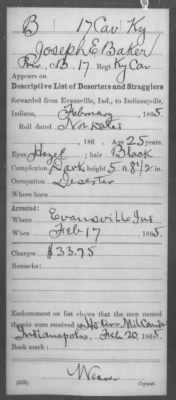 B 17 Cav Ky
Joseph E Baker
Priv., Co. B. 17 Regt Ky Cav
Appears on
Descriptive List of Deserters and Stragglers
forwarded from Evansville, Ind., to Indianapolis,
Indiana, February , 1865.
Roll dated Not dated
, 186 . Age 25 years.
Eyes Hazel ; hair Black
Complexion Dark height 5 ft. 8 1/2 in.
Occupation Deserter
Where born
Arrested:
Where Evansville Ind
When Feb 17 , 1865.
Charges $33.75
Remarks:
Endorsement on list shows that the men named
therein were received
Indianapolis, Feb 20, 1865
Book mark:
Weaver
Copyist.